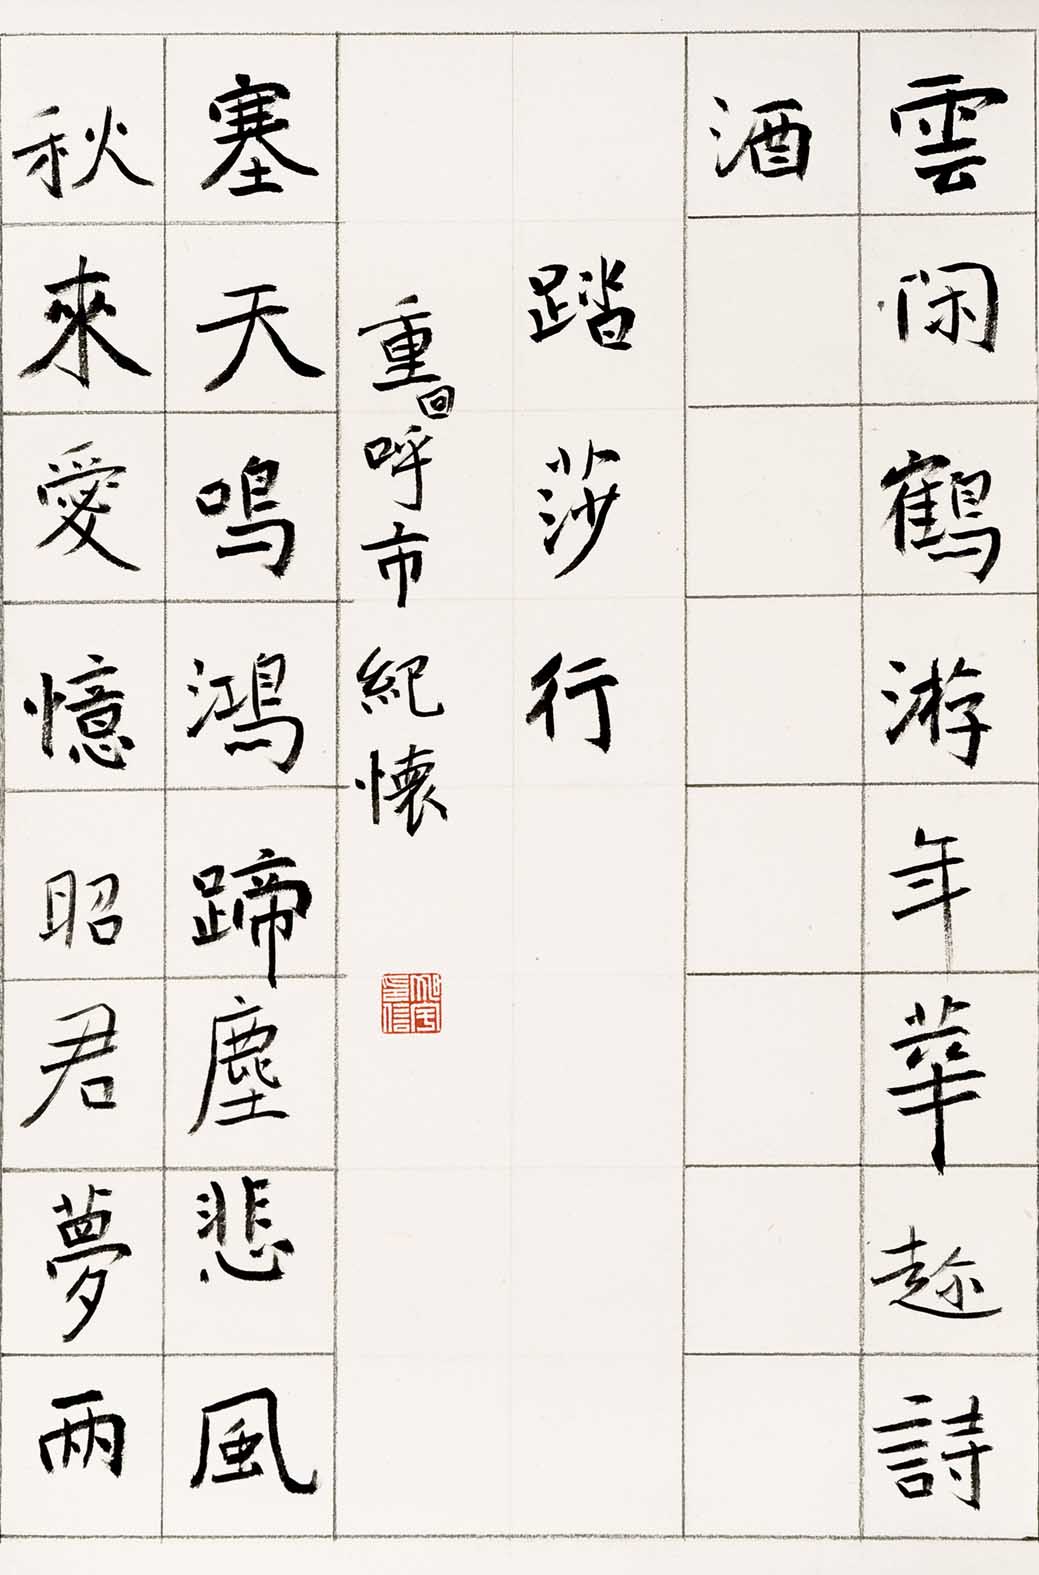 雲闲鶴游年華趁詩
酒
踏莎行
重回呼市紀懷
塞天鳴鴻蹄塵悲風
秋來愛憶昭君夢兩